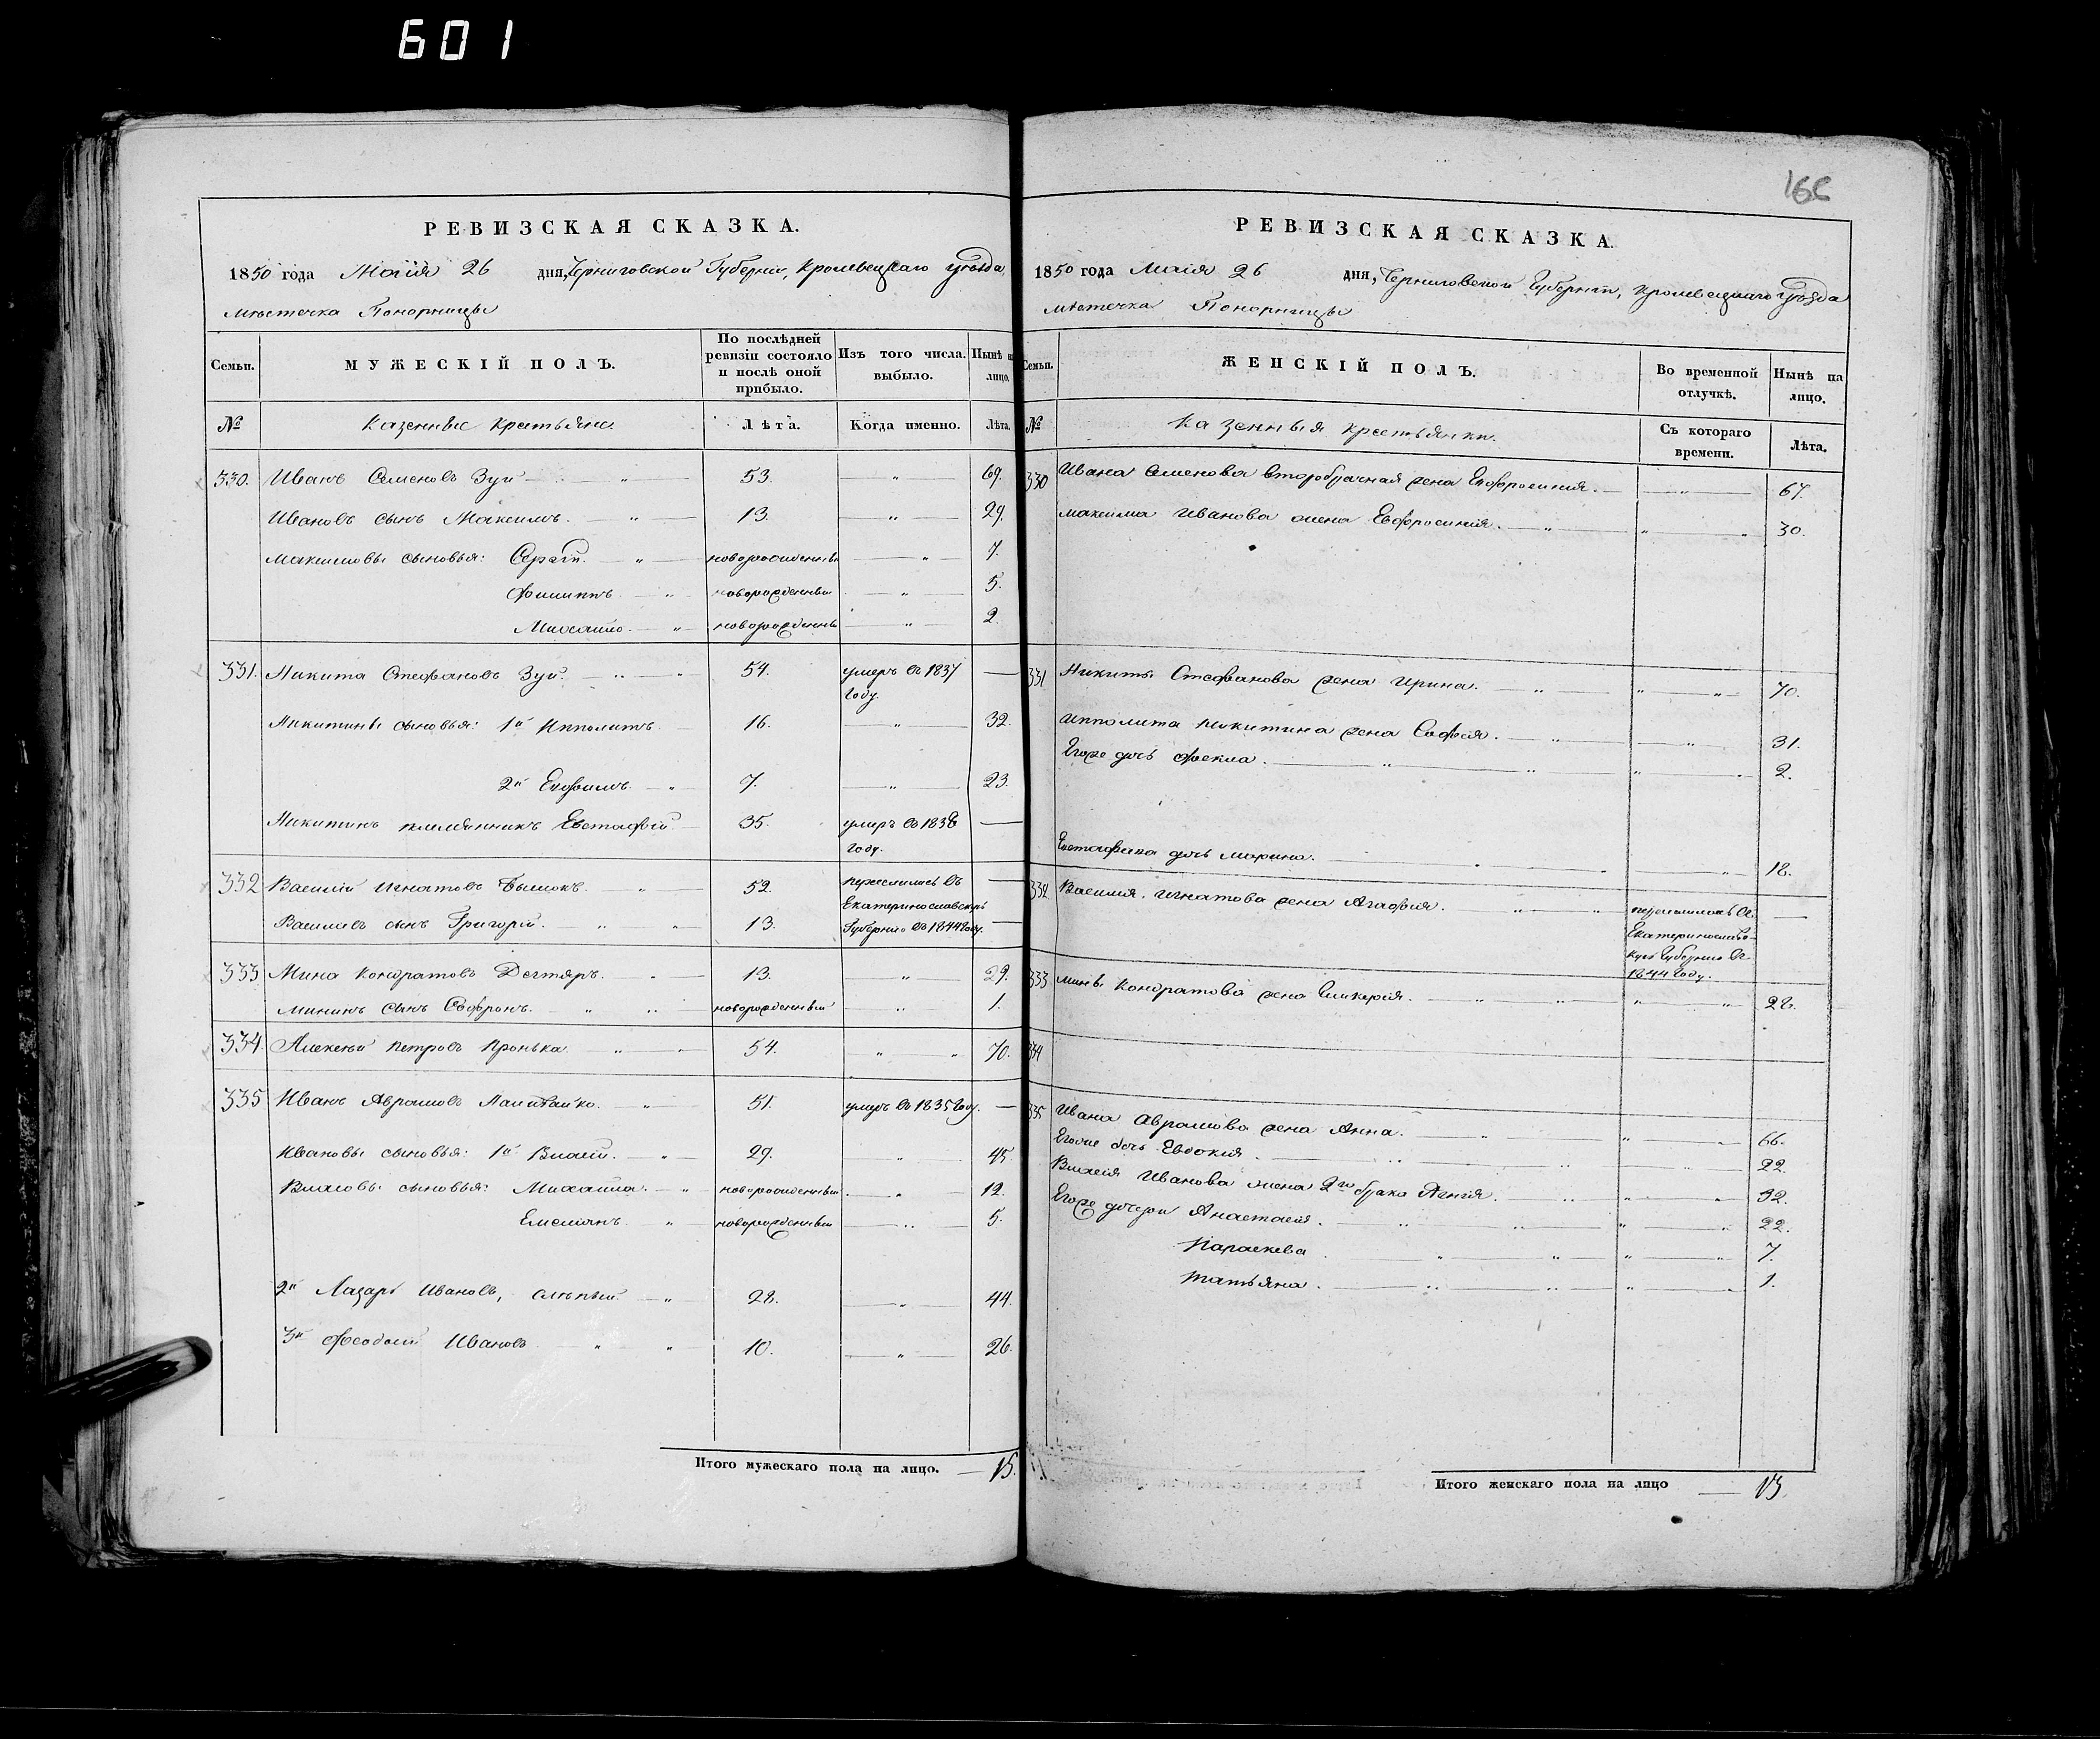 601
166
РЕВИЗСКАЯ СКАЗКА.
1850 года Маія 26 дня, Черниговской Губерніи, Кролевецкаго уѣзда
мѣстечка Понорницы
Семьи. МУЖЕСКІЙ ПОЛЪ. По послѣдней ревизіи состояло и послѣ оной прибыло. Изъ того числа выбыло. Нынѣ на лицо.
№ Казенные крестьяне Лѣта. Когда именно. Лѣта.
330. Иванъ Семеновъ Зуй 53. 69.
Ивановъ сынъ Максимъ. 13. 29.
Максимовы сыновья: Сергѣй. новорожденный 7.
Филиппъ новорожденный 5.
Михайло. новорожденный 2.
331. Никита Стефановъ Зуй. 54. умеръ въ 1837
году.
Никитины сыновья: 1й Ипполитъ. 16. 32.
2й Евфимъ. 7. 23.
Никитинъ племянникъ Евстафій 35. умеръ въ 1838
году.
332 Василій Игнатовъ 52. переселились въ
Екатеринославскую
Васильевъ сынъ Григорій. 13. Губернію въ 1844 году.
333 Мина Кондратовъ Дегтяръ. 13. 29.
Мининъ сынъ Софронъ. новорожденный 1.
334. Алексѣй Петровъ Пронька 54. 70.
335 Иванъ Аврамовъ 51. умеръ въ 1835 году.
Ивановы сыновья: 1й Власій. 29. 45.
Власовы сыновья: Михайла. новорожденный 12.
Емельянъ. новорожденный 5.
2й Лазарь Ивановъ, слѣпый 28. 44.
3й Феодосій Ивановъ 10. 26.
Итого мужескаго пола на лицо. 15.
РЕВИЗСКАЯ СКАЗКА.
1850 года Маія 26 дня, Черниговской Губерніи, Кролевецкаго уѣзда
мѣстечка Понорницы
Семьи. ЖЕНСКІЙ ПОЛЪ. Во временной отлучкѣ. Нынѣ на лицо.
№ Казенныя крестьянки. Съ котораго времени. Лѣта.
330 Ивана Семенова второбрачная жена Евфросинія. 67.
Максима Иванова жена Евфросинія. 30.
331 Никиты Стефанова жена Ирина. 70.
Ипполита Никитина жена Софія. 31.
Егоже дочь Фекла. 2.
Евстафіева дочь Марина. 18.
332 Василія Игнатова жена Агафія. переселилась въ
Екатеринослав-
скую Губернію въ
1844 году.
333 Мины Кондратова жена Гликерія. 28.
334
335 Ивана Аврамова жена Анна. 66.
Егоже дочь Евдокія. 22.
Власія Иванова жена 2го брака Агнія. 32.
Егоже дочери Анастасія. 22.
Параскева 7.
Татьяна. 1.
Итого женскаго пола на лицо 13.